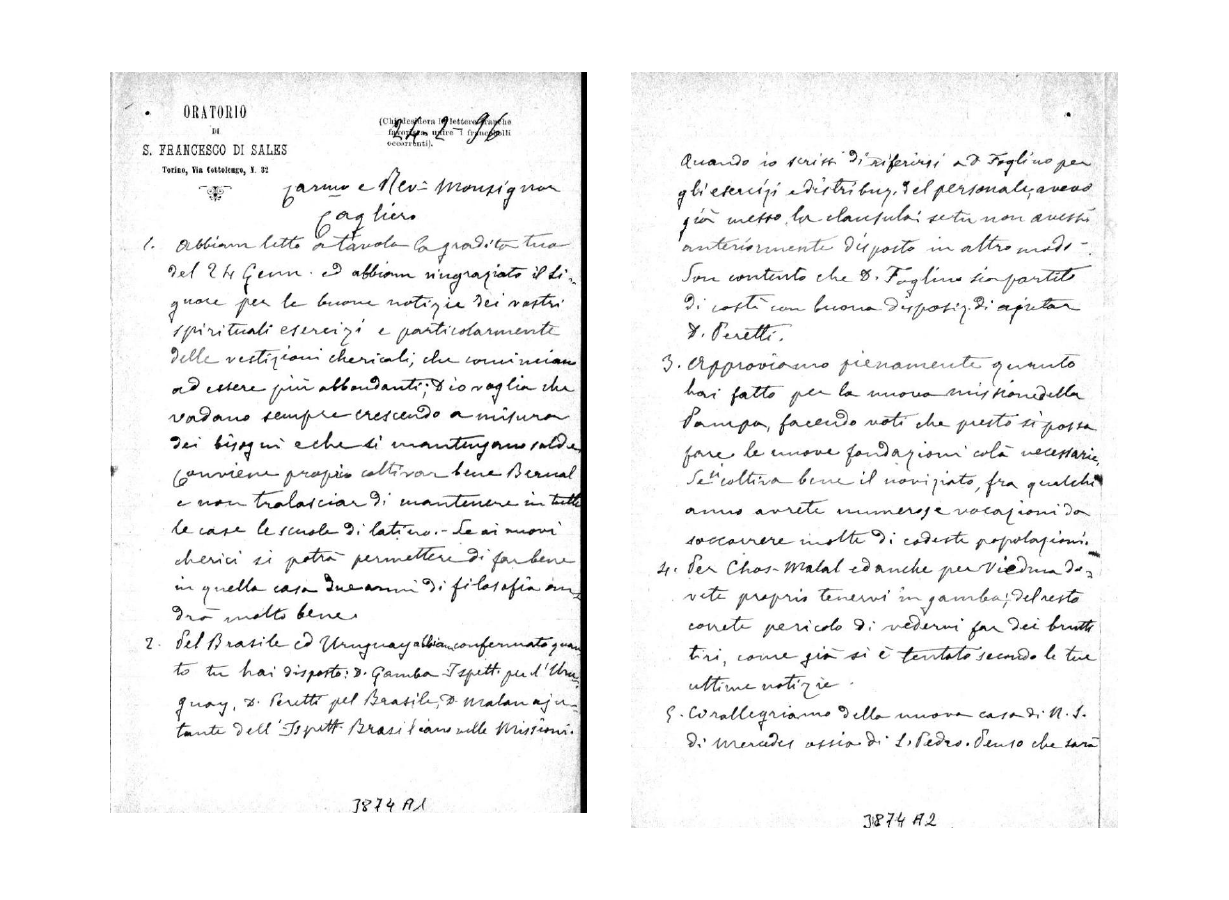 ORATORIO
DI
S. FRANCESCO DI SALES
Torino, Via Cottolengo, N. 32
(Chi desidera le lettere franche
favorisca unire i francobolli
occorrenti).
24-2-96
Carmo e Rev- Monsignor
Cagliero
1. Abbiam letto a tavola la gradita tua
del 24 Genn. ed abbiam ringraziato il Si-
gnore per le buone notizie dei vostri
spirituali esercizi e particolarmente
delle vestizioni chericali, che cominciano
ad essere più abbondanti; Dio voglia che
vadano sempre crescendo a misura
dei bisogni e che si mantengano salde.
Conviene proprio coltivar bene Bernal
e non tralasciar di mantenere in tutte
le case le scuole di latino.- Se ai nuovi
cherici si potrà permettere di far bene
in quella casa due anni di filosofia an-
drà molto bene.
2. Pel Brasile ed Uruguay abbiam confermato quan
to tu hai disposto: D. Gamba Ispett. per l'Uru-
guay, D. Peretti pel Brasile, D. Malan aju-
tante dell'Ispett. Brasiliano nelle Missioni.
3874 A1
Quando io scrissi di riferirsi a D. Foglino per
gli esercizi e distribuz. del personale, avevo
già messo la clausula: se tu non avessi
anteriormente disposto in altro modo-
Son contento che D. Foglino sia partito
di costì con buona disposiz. di ajutar
D. Peretti.
3. Approviamo pienamente quanto
hai fatto per la nuova missione della
Pampa, facendo voti che presto si possa
fare le nuove fondazioni colà necessarie.
Se si coltiva bene il noviziato, fra qualche
anno avrete numerose vocazioni da
soccorrere molte di codeste popolazioni.
4. Per Chos-Malal ed anche per Viedma do-
vete proprio tenervi in gamba; del resto
correte pericolo di vedervi far dei brutti
tiri, come già si è tentato secondo le tue
ultime notizie.
5. Ci rallegriamo della nuova casa di N. S.
di Mercedes ossia di S. Pedro. Penso che sarà
3874 A2